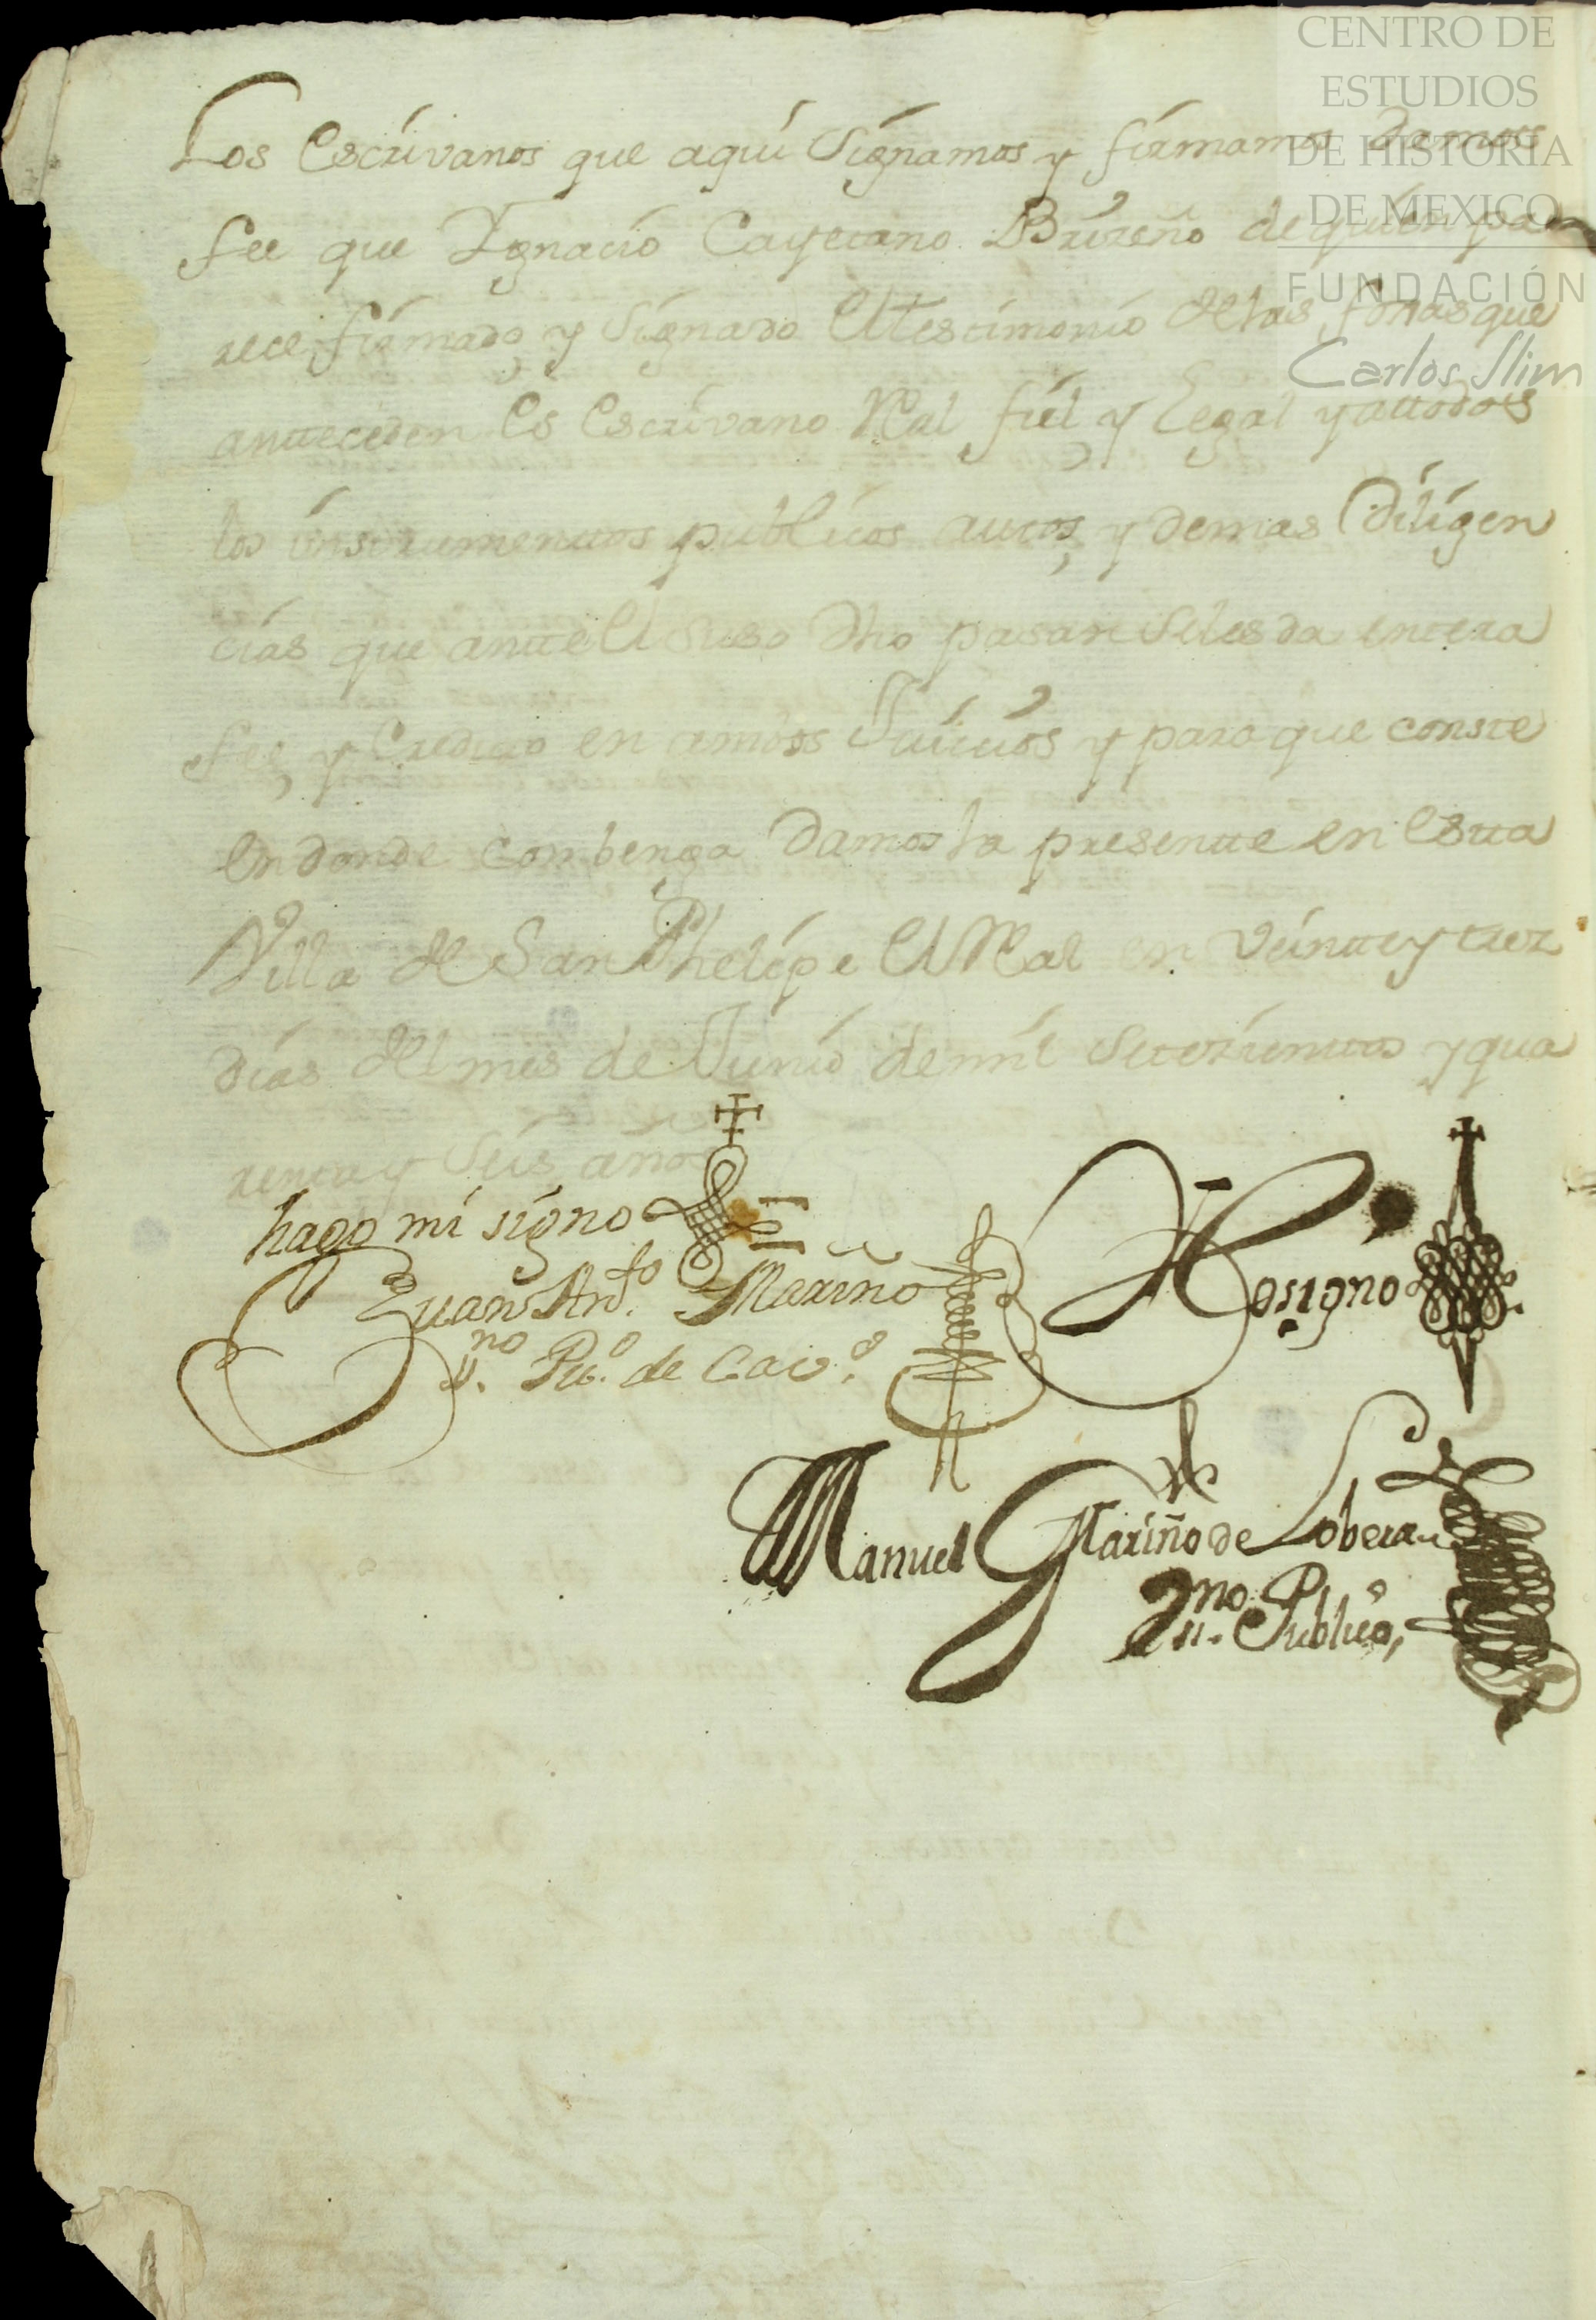 CENTRO DE
ESTUDIOS
DE HISTORIA
DE MEXICO
FUNDACIÓN
Carlos Slim
Los Escrivanos que aqui Signamos y firmamos Damos
fee que Ygnacio Cayetano Brizeño de quien pa
rece firmado, y Signado El testimonio de las foxas que
antteceden Es Escrivano Real fiel y Legal y attodos
los instrumenttos publicos autos, y demas Diligen
cias que antte El Suso dho pasan Seles da entera
fee, y Credito en ambos Juicios y para que conste
en donde combenga Damos la presentte en Estta
Villa de San Phelipe El Real en veintte y trez
dias del mes de Junio de mil Setezienttos y qua
renta y Seis años
hago mi signo
Juan Antto. Mariño
sno. Puco. de Cavo.
Hosigno
Manuel Mariño de Lobera
Sno. Publico,